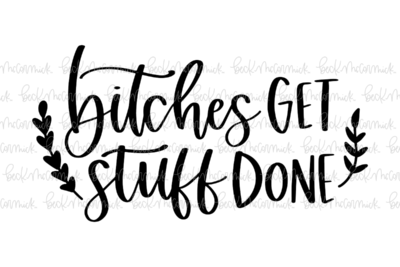 bitches GET
stuff DONE